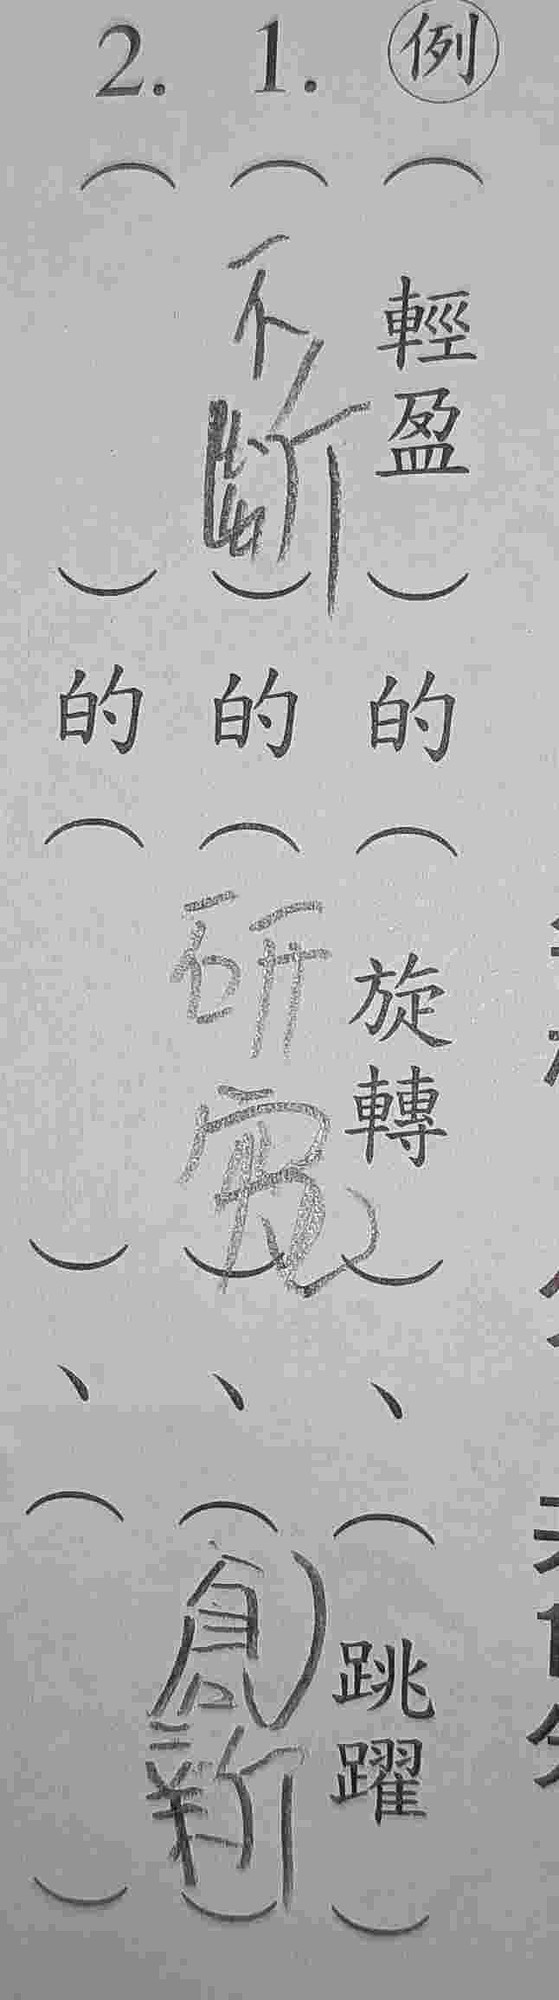 例（輕盈）的（旋轉）、（跳躍）
1.（不斷）的（研究）、（創新）
2.（）的（）、（）